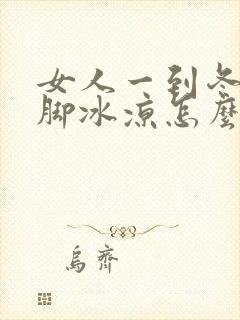 女人一到冬
脚冰凉怎麼
烏齊